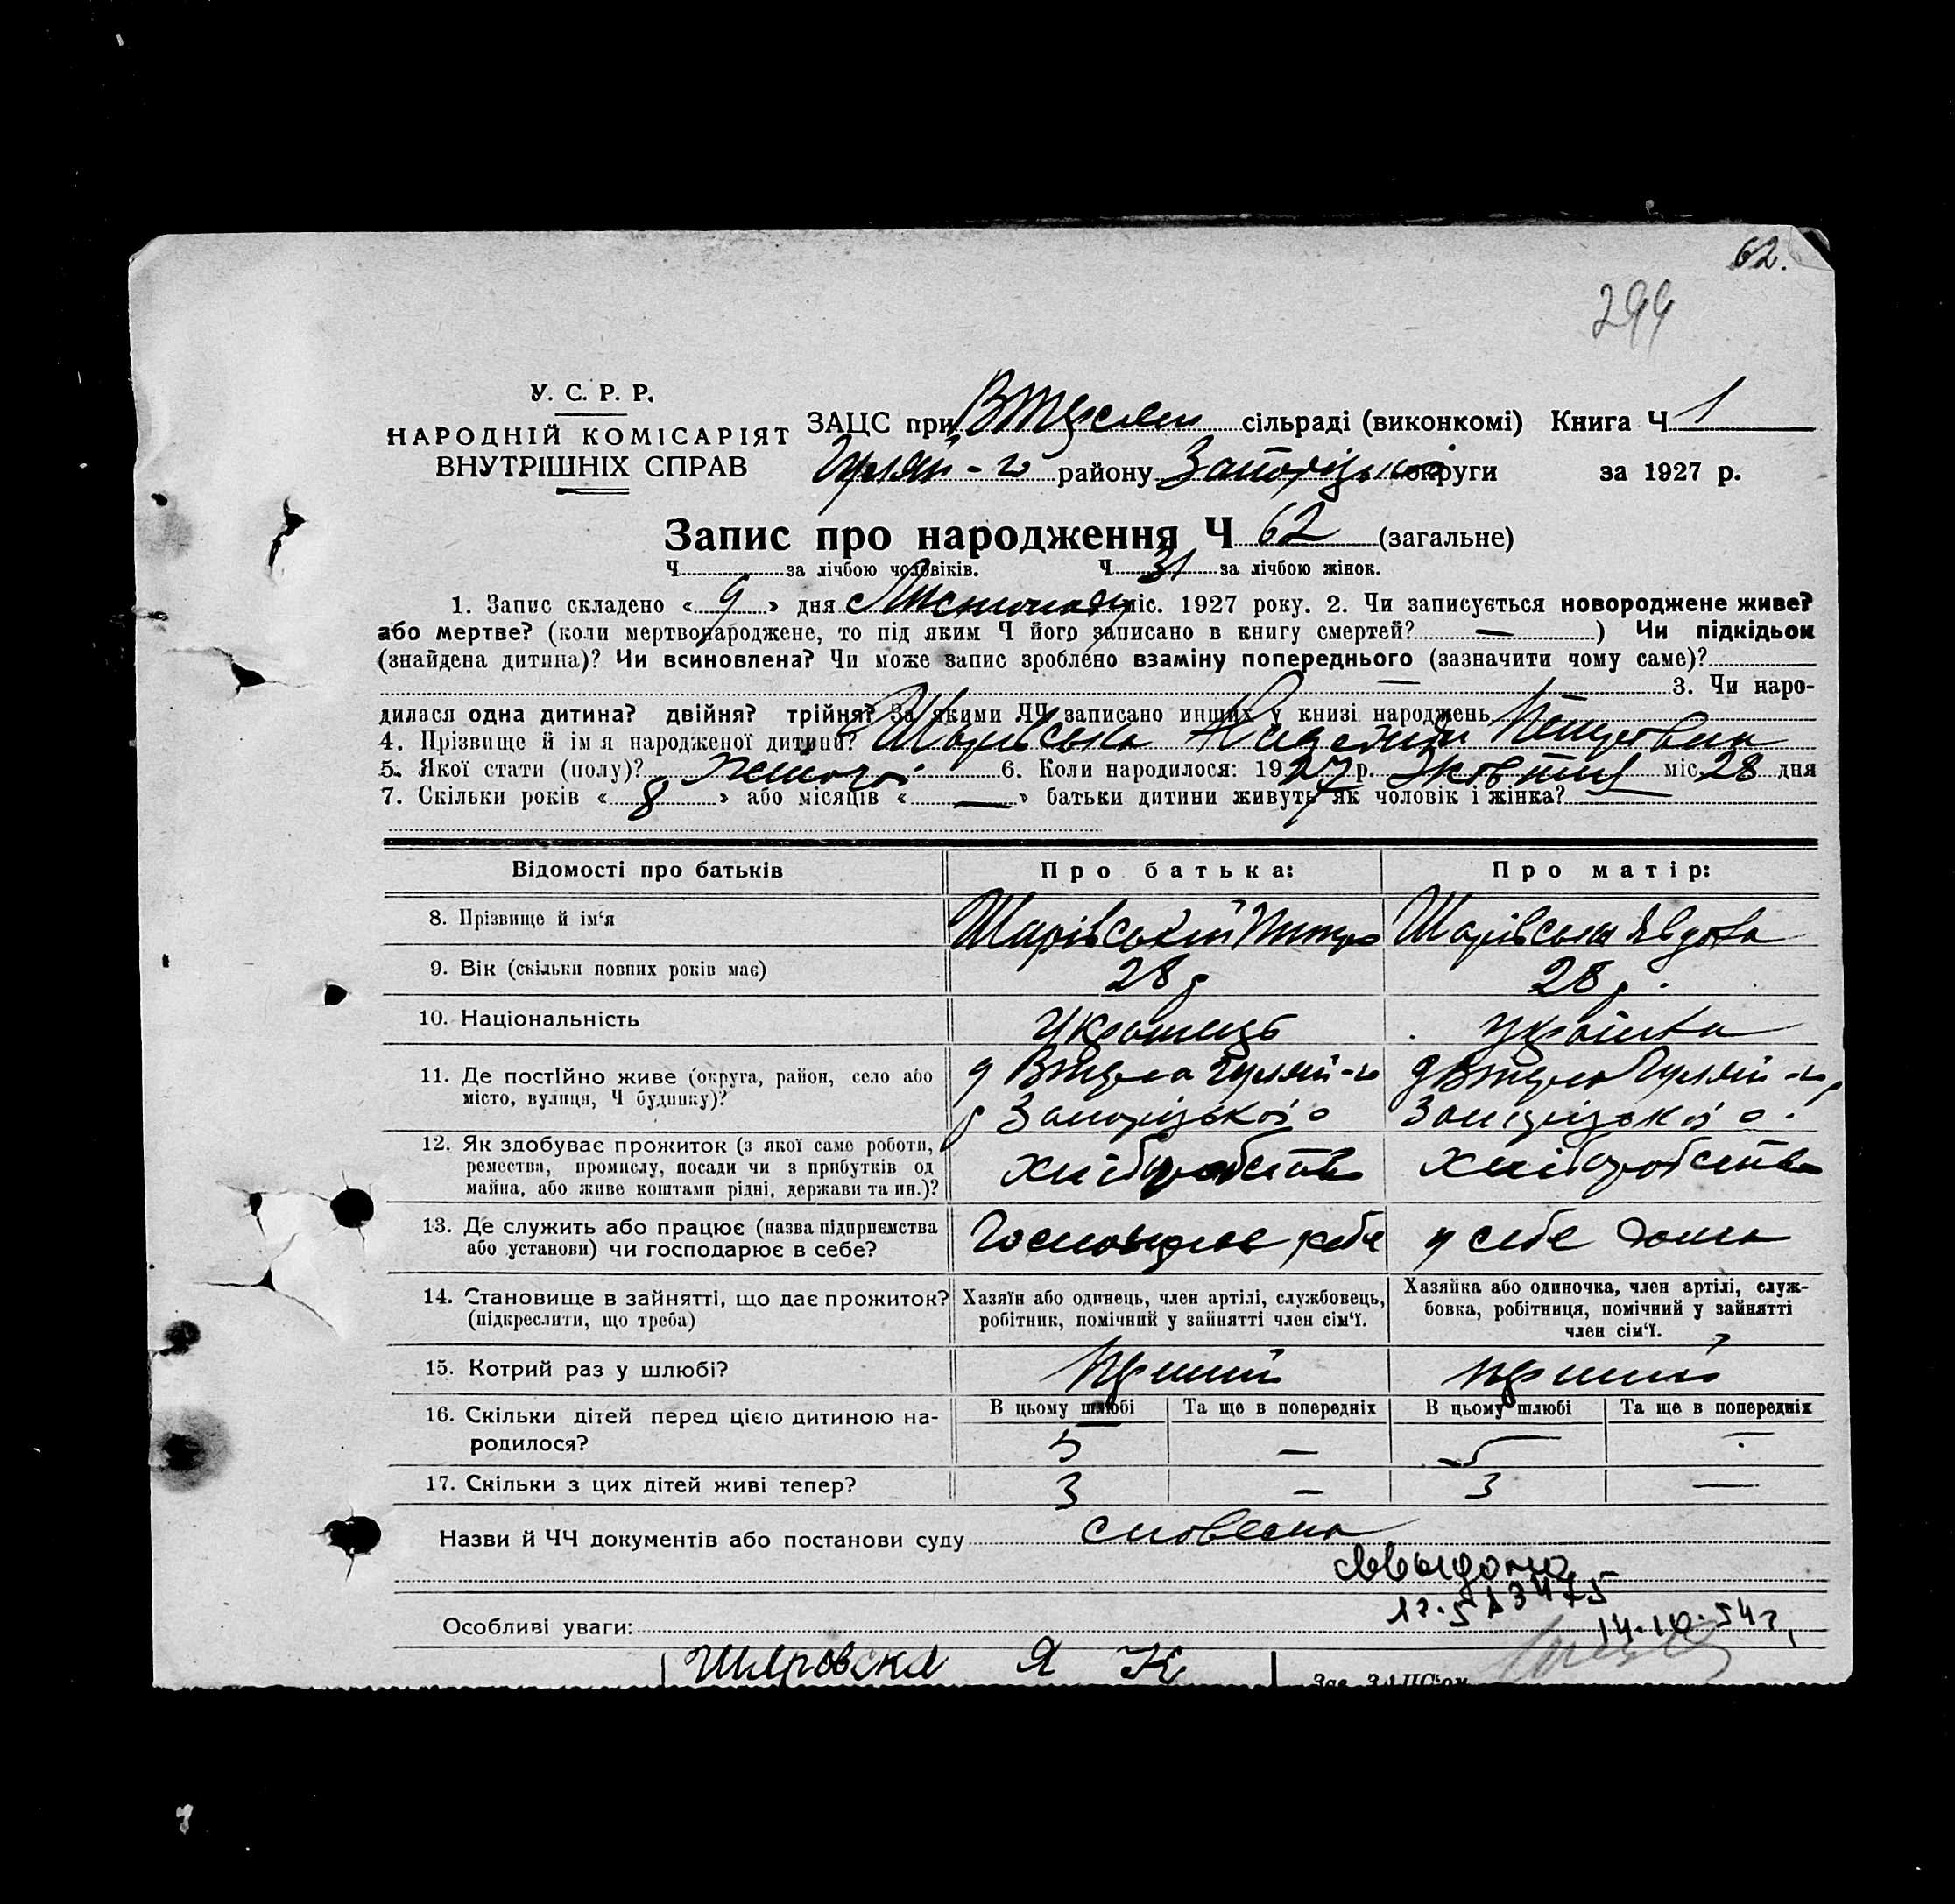 62.
299
У. С. Р. Р.
НАРОДНІЙ КОМІСАРІЯТ
ВНУТРІШНІХ СПРАВ
ЗАЦС при сільраді (виконкомі) Книга Ч 1
Гуляй-го району Запорізької округи за 1927 р.
Запис про народження Ч 62 (загальне)
Ч за лічбою чоловіків. Ч 31 за лічбою жінок.
1. Запис складено « 9 » дня Листопаду міс. 1927 року. 2. Чи записується новороджене живе?
або мертве? (коли мертвонароджене, то під яким Ч його записано в книгу смертей? — ) Чи підкідьок
(знайдена дитина)? Чи всиновлена? Чи може запис зроблено взаміну попереднього (зазначити чому саме)?
— 3. Чи наро-
дилася одна дитина? двійня? трійня? За якими ЧЧ записано инших у книзі народжень
4. Прізвище й ім я народженої дитини? Шарівська Петровна
5. Якої стати (полу)? жіночої 6. Коли народилося: 1927 р. Жовтня міс. 28 дня
7. Скільки років « 8 » або місяців « — » батьки дитини живуть як чоловік і жінка?
Відомості про батьків Про батька: Про матір:
8. Прізвище й ім‘я Шарівський Петро Шарівська Явдоха
9. Вік (скільки повних років має) 28 р 28 р.
10. Національність Українець Українка
11. Де постійно живе (округа, район, село або
місто, вулиця, Ч будинку)?
Гуляй-го Гуляй-го
р Запорізької о Запорізької о.
12. Як здобуває прожиток (з якої саме роботи,
ремества, промислу, посади чи з прибутків од
майна, або живе коштами рідні, держави та ин.)?
хліборобство хліборобство
13. Де служить або працює (назва підприємства
або установи) чи господарює в себе?
Господарює у себе у себе дома
14. Становище в зайнятті, що дає прожиток?
(підкреслити, що треба)
Хазяїн або одинець, член артілі, службовець,
робітник, помічний у зайнятті член сім‘ї.
Хазяйка або одиночка, член артілі, служ-
бовка, робітниця, помічний у зайнятті
член сім‘ї.
15. Котрий раз у шлюбі? перший перший
16. Скільки дітей перед цією дитиною на-
родилося?
В цьому шлюбі Та ще в попередніх В цьому шлюбі Та ще в попередніх
5 — 5 —
17. Скільки з цих дітей живі тепер? 3 — 3 —
Назви й ЧЧ документів або постанови суду словесна
14.10.54г.
Особливі уваги:
Шаровска Я К
Зав. ЗАЦС‘ом